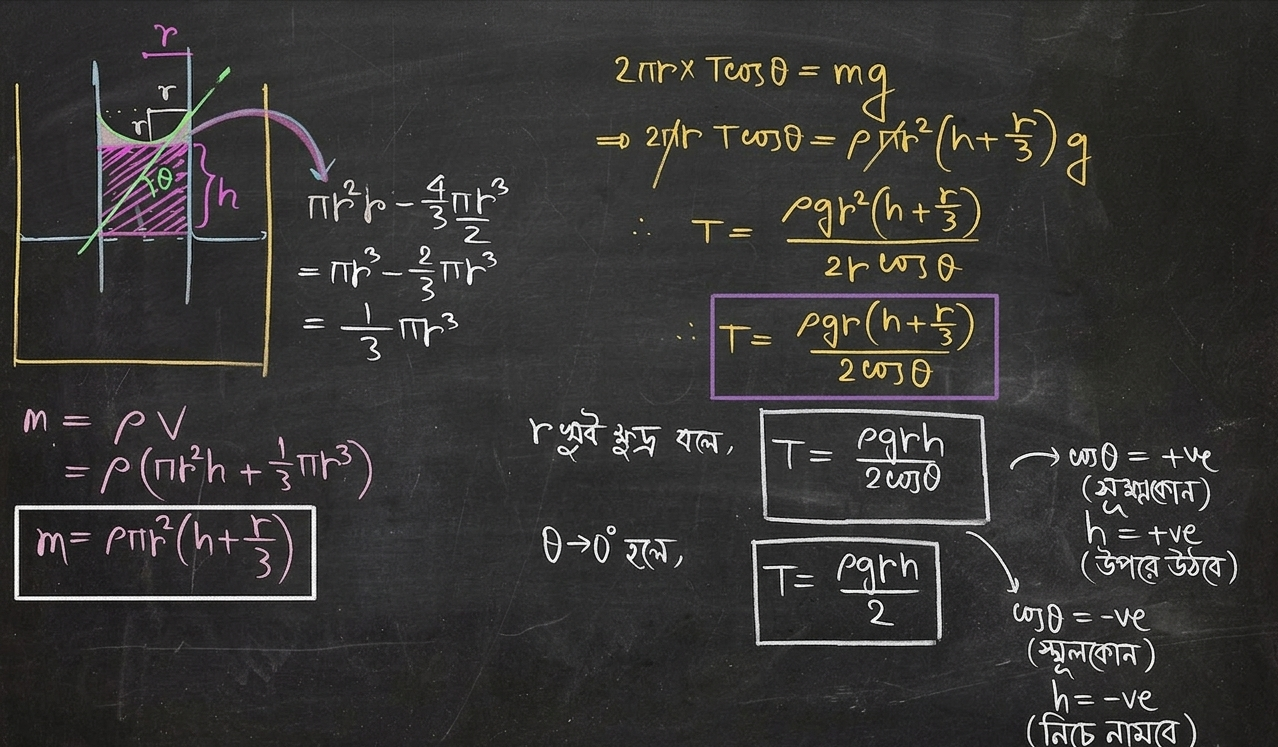 r
r
r
θ
h
πr²r − 4/3 πr³/2
= πr³ − 2/3 πr³
= 1/3 πr³
m = ρV
= ρ(πr²h + 1/3 πr³)
m = ρπr²(h + r/3)
2πr × Tcosθ = mg
⇒ 2πr Tcosθ = ρπr²(h + r/3)g
∴ T = ρgr²(h + r/3) / 2r cosθ
∴ T = ρgr(h + r/3) / 2cosθ
r খুব ক্ষুদ্র বলে, T = ρgrh / 2cosθ
θ→0° হলে, T = ρgrh / 2
cosθ = +ve
(সূক্ষ্মকোন)
h = +ve
(উপরে উঠবে)
cosθ = -ve
(স্থূলকোন)
h = -ve
(নিচে নামবে)